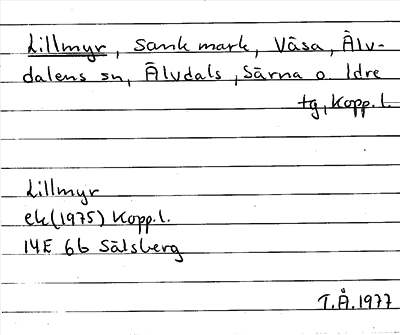 Lillmyr, Sank mark, Våsa, Älv-
dalens sn, Älvdals, Särna o. Idre
tg, Kopp. l.
Lillmyr
ek (1975) Kopp. l.
14E 6b Sälsberg
T.Å. 1977